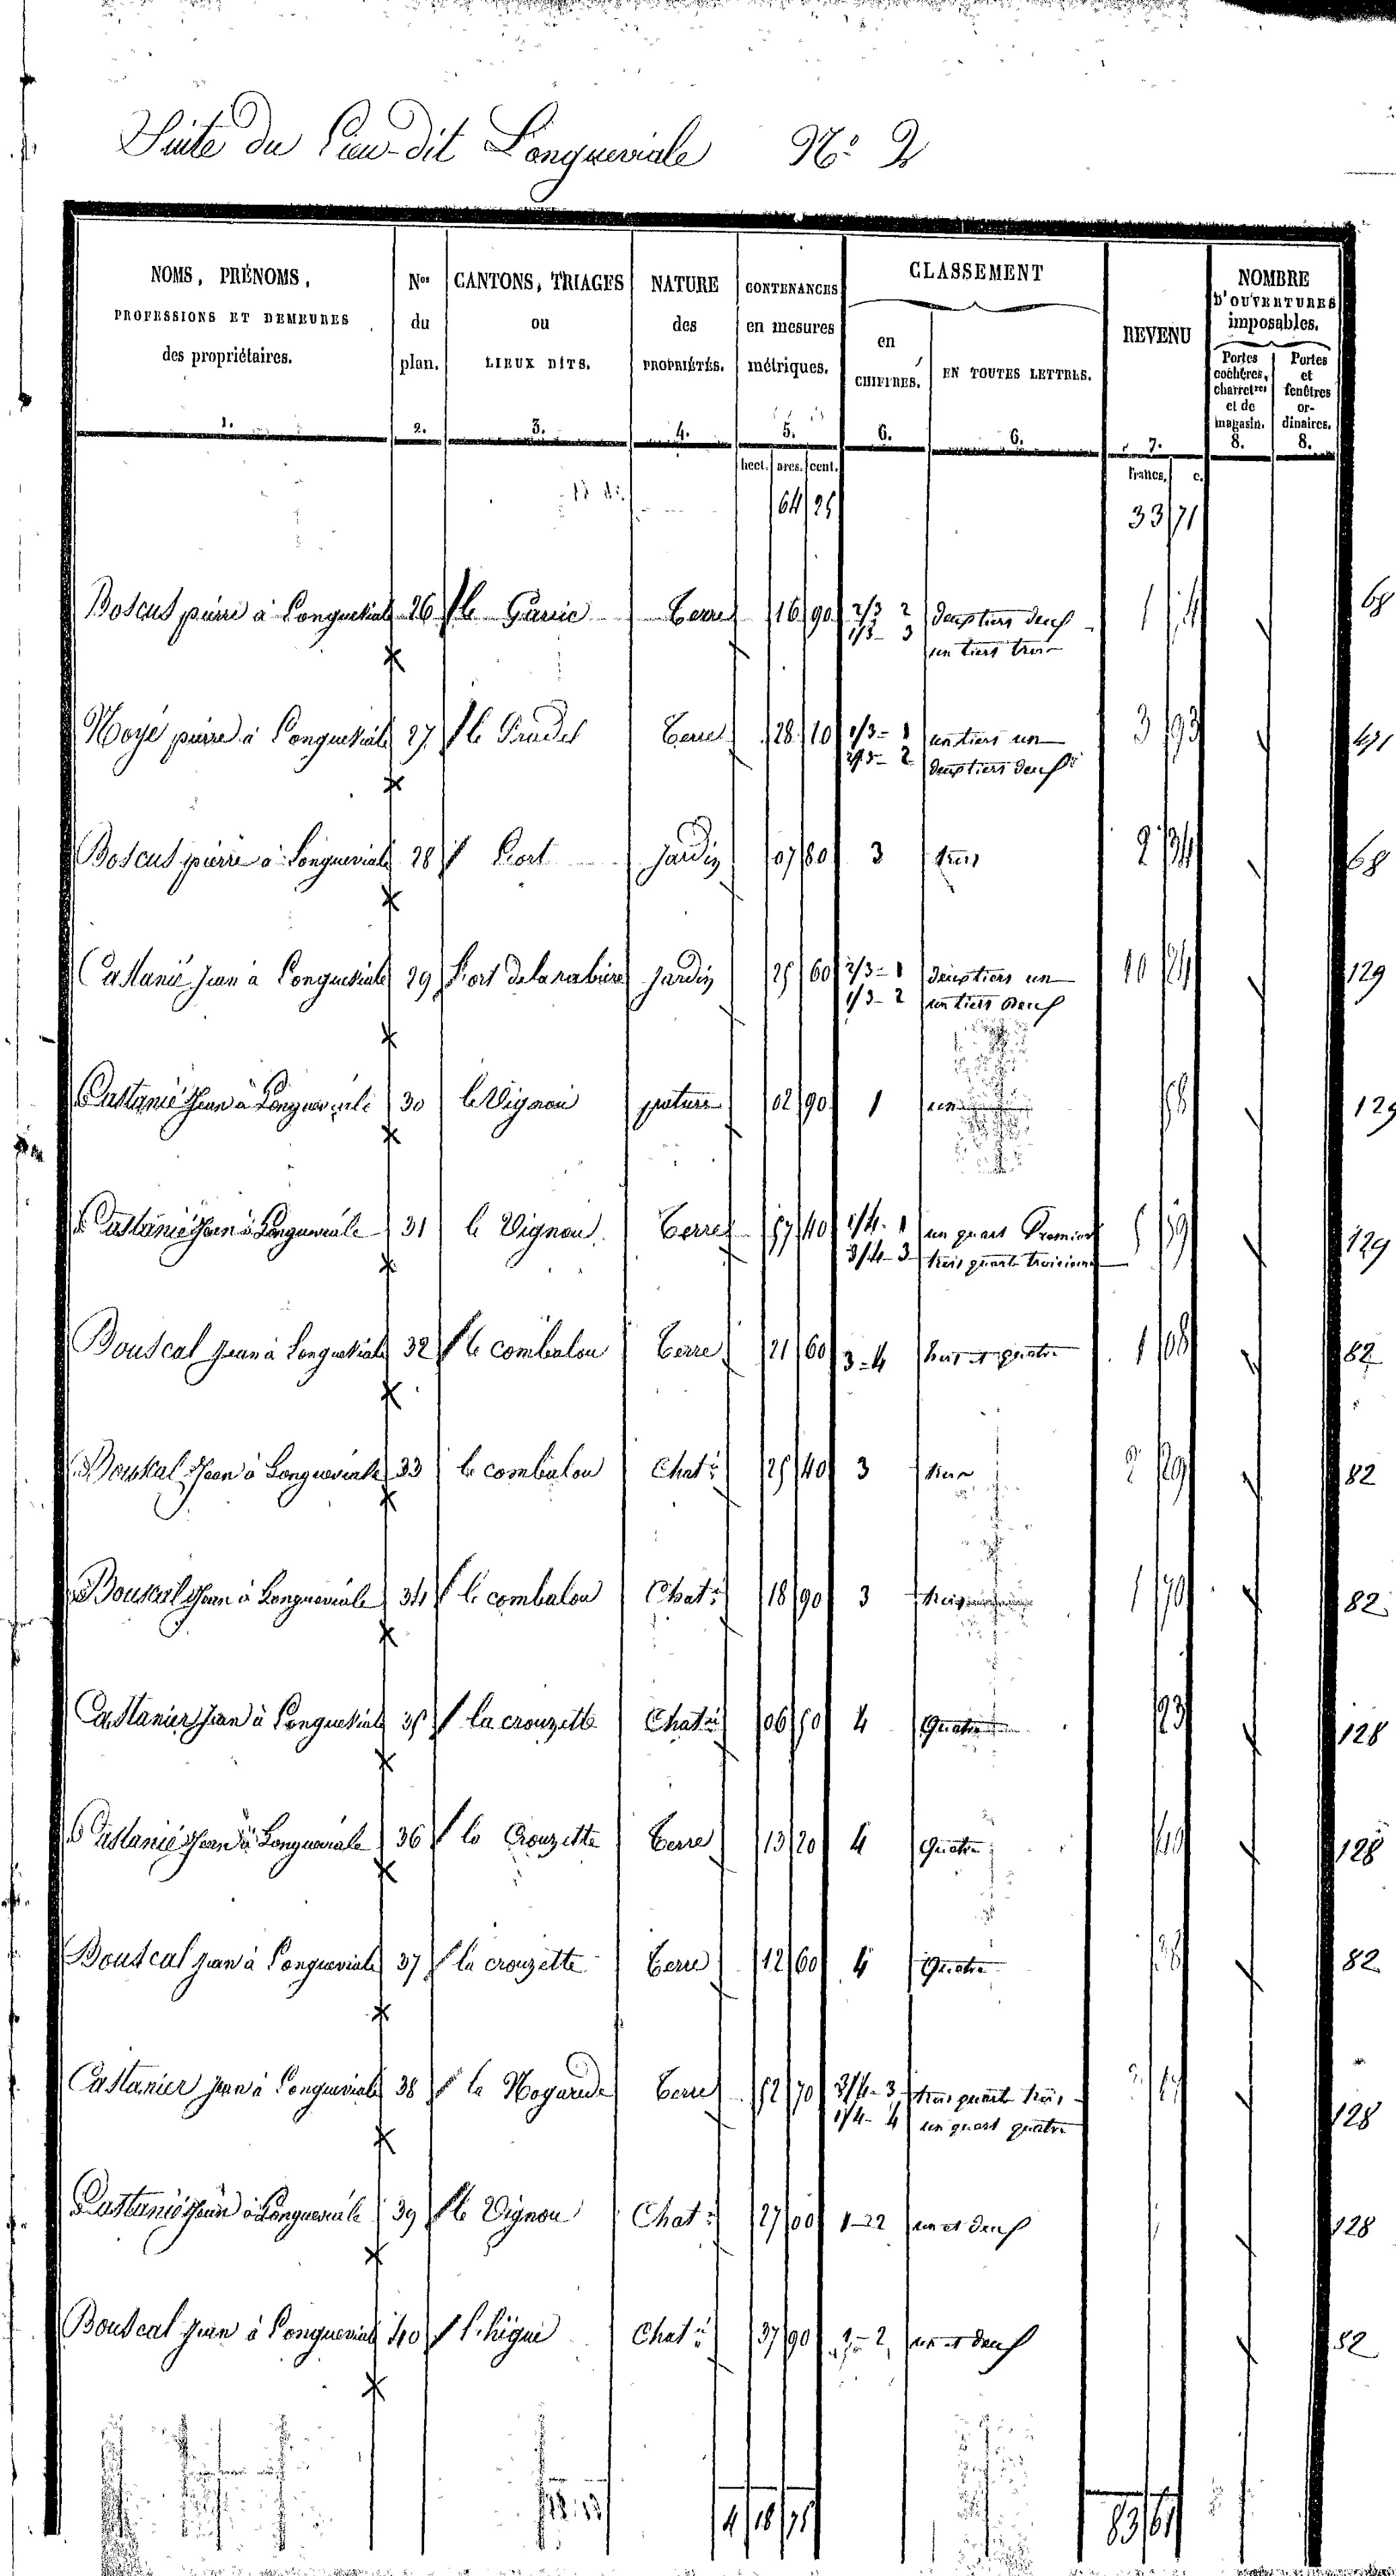 Suite du Lieu-dit Longueviale N.º 2
NOMS, PRÉNOMS, PROFESSIONS ET DEMEURES des propriétaires. 1.
Nos du plan. 2.
CANTONS, TRIAGES ou LIEUX DITS. 3.
NATURE des PROPRIÉTÉS. 4.
CONTENANCES en mesures métriques. 5.
CLASSEMENT
en CHIFFRES. 6.
EN TOUTES LETTRES. 6.
REVENU 7.
NOMBRE D'OUVERTURES imposables.
Portes cochères, charretres et de magasin. 8.
Portes et fenêtres ordinaires. 8.
hect. ares. cent. francs. c.
64 25 33 71
Boscus pierre à Longueviale 26 le Garric Terre 16 90 2/3 2 deux tiers deux 68
1/3 - 3 un tiers trois
pierre à Longueviale 27 le Pradel Terre 28 10 1/3 - 1 un tiers un 3 93
2/3 - 2 deux tiers deux
Boscus pierre à Longueviale 28 l'hort jardin 07 80 3 trois 2 34 68
Castanié jean à Longueviale 29 hort jardin 25 60 2/3 - 1 deux tiers un 10 24 129
1/3 - 2 un tiers deux
Castanié Jean à Longueviale 30 le Vignou pature 02 90 1 un 129
Castanié Jean à Longueviale 31 le Vignou Terre 57 40 1/4 - 1 un quart Premier 129
3/4 - 3 trois quarts troisieme
Bouscal jean à Longueviale 32 le combalou Terre 21 60 3 - 4 trois et quatre 1 08 82
Bouscal Jean à Longueviale 33 le combalou Chat: 25 40 3 trois 2 29 82
Bouscal Jean à Longueviale 34 le combalou Chat: 18 90 3 trois 1 70 82
Castanier jean à Longueviale 35 la crouzette Chat: 06 50 4 Quatre 128
Castanié Jean à Longueviale 36 la Crouzette Terre 13 20 4 Quatre 128
Bouscal jean à Longueviale 37 la crouzette Terre 12 60 4 Quatre 82
Castanier jean à Longueviale 38 la Nogarede Terre 52 70 3/4 - 3 trois quarts trois 128
1/4 - 4 un quart quatre
Castanié Jean à Longueviale 39 le Vignou Chat: 27 00 un et deux 128
Bouscal jean à Longueviale 40 Chat: 37 90 1 - 2 un et deux 82
4 18 75 83 61